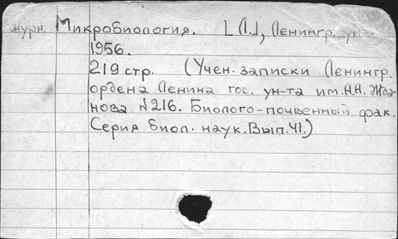 журн. Микробиология. [Л.], Ленингр. ун-
1956.
219 стр. (Учен. записки Ленингр.
ордена Ленина гос. ун-та им. А.А. Жда-
нова №216. Биолого-почвенный фак.
Серия биол. наук. Вып. 41.)